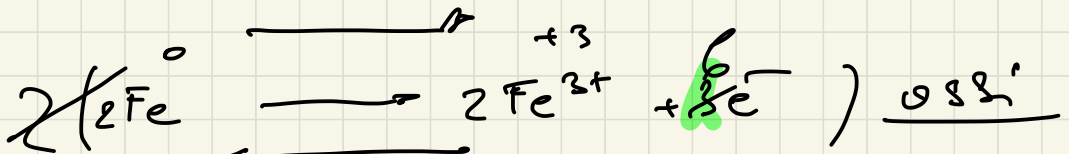 +3
2(2Fe⁰ → 2Fe³⁺ + 6e⁻) ossi